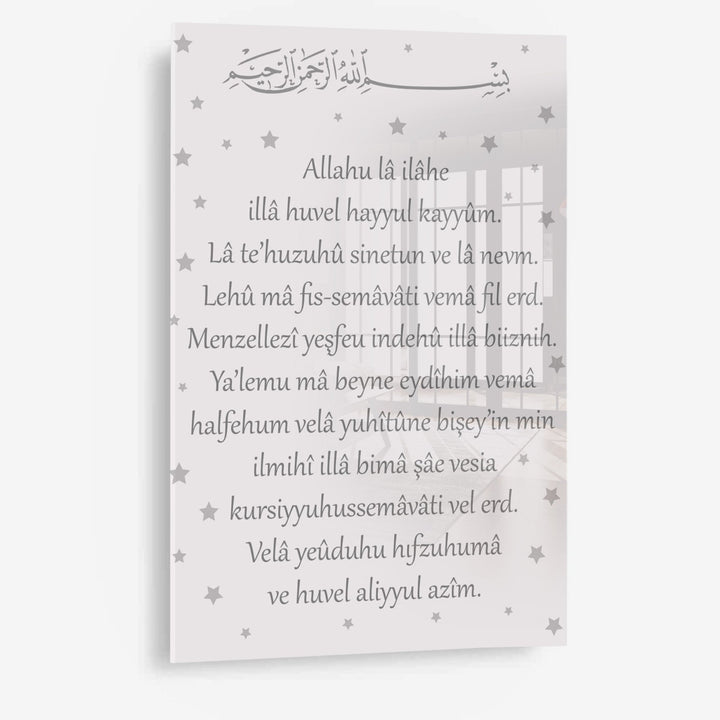 بِسْمِ اللهِ الرَّحْمٰنِ الرَّحِيْمِ
Allahu lâ ilâhe
illâ huvel hayyul kayyûm.
Lâ te’huzuhû sinetun ve lâ nevm.
Lehû mâ fis-semâvâti vemâ fil erd.
Menzellezî yeşfeu indehû illâ biiznih.
Ya’lemu mâ beyne eydîhim vemâ
halfehum velâ yuhîtûne bişey’in min
ilmihî illâ bimâ şâe vesia
kursiyyuhussemâvâti vel erd.
Velâ yeûduhu hıfzuhumâ
ve huvel aliyyul azîm.